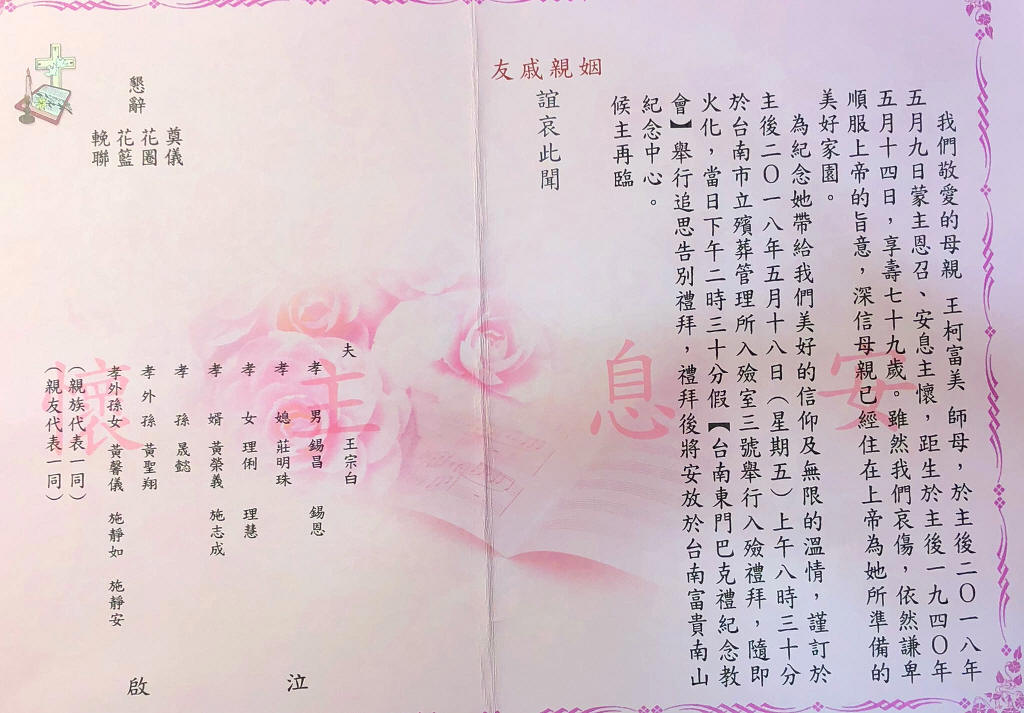 我們敬愛的母親　王柯富美　師母，於主後二〇一八年
五月九日蒙主恩召、安息主懷，距生於主後一九四〇年
五月十四日，享壽七十九歲。雖然我們哀傷，依然謙卑
順服上帝的旨意，深信母親已經住在上帝為她所準備的
美好家園。
為紀念她帶給我們美好的信仰及無限的溫情，謹訂於
主後二〇一八年五月十八日（星期五）上午八時三十分
於台南市立殯葬管理所入殮室三號舉行入殮禮拜，隨即
火化，當日下午二時三十分假【台南東門巴克禮紀念教
會】舉行追思告別禮拜，禮拜後將安放於台南富貴南山
紀念中心。
候主再臨
誼哀此聞
姻親戚友
安息主懷
夫　王宗白
孝男　錫昌　錫恩
孝媳　莊明珠
孝女　理俐　理慧
孝婿　黃榮義　施志成
孝孫　晟懿
孝外孫　黃聖翔
孝外孫女　黃馨儀　施靜如　施靜安
（親族代表一同）
（親友代表一同）
泣
啟
懇辭
奠儀
花圈
花籃
輓聯